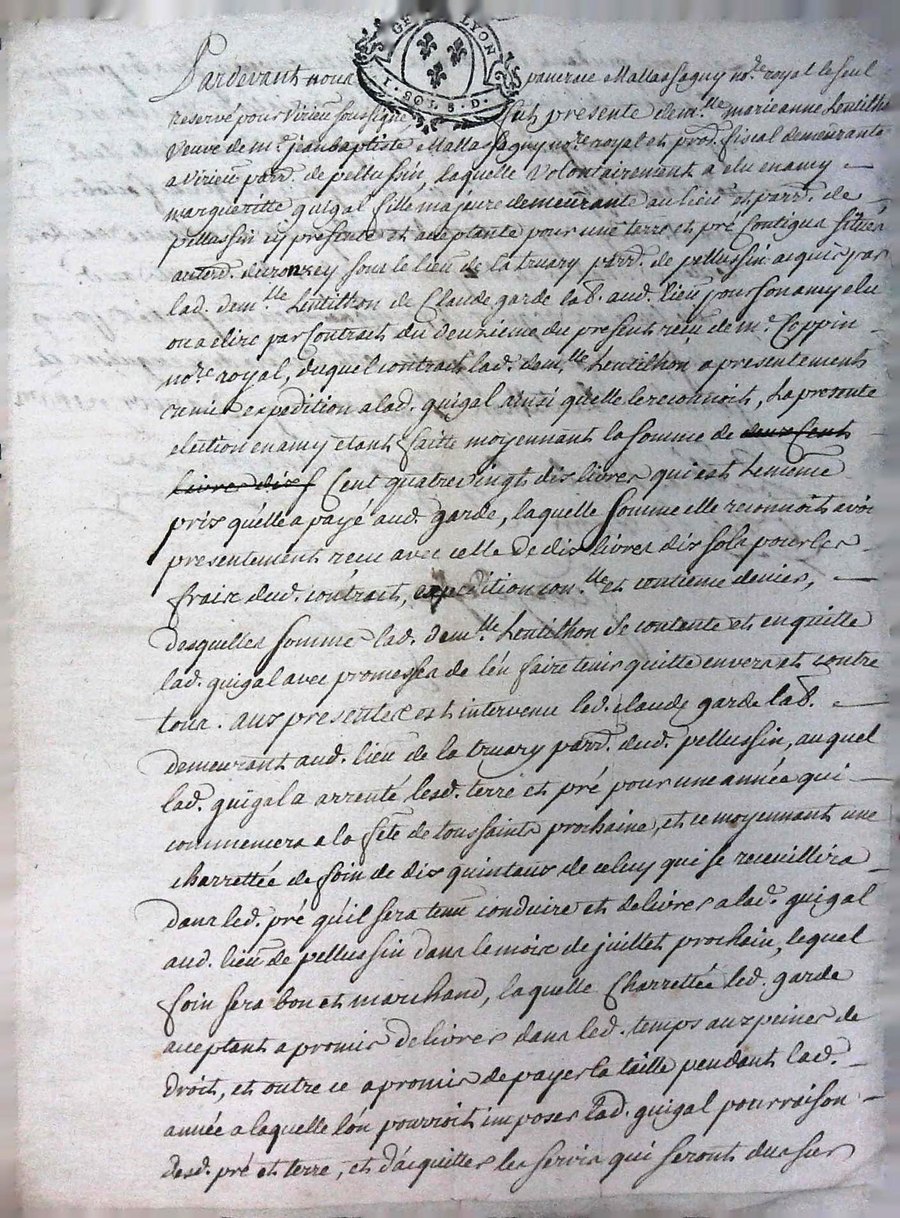 GE LYON
I · SOL 8 · D ·
Pardevant nous pancrace Mallassagny no.re royal le seul
reservé pour Virieu soussigné, fut presente dem.lle marieanne Lentilhon
Veuve de m.e jeanbaptiste Mallassagny no.re royal et pro.r fiscal demeurante
a Virieu parr.e de pellussin, laquelle Volontairement a elu enamy
margueritte guigal fille majure demeurante au lieu et parr.e de
pellussin icy presente et acceptante pour une terre et pré Contigus situés
auterr.e duronzey sous le lieu de la truary parr.e de pellussin acquis par
lad. dem.lle Lentilhon de Claude garde lab. aud. lieu pour son amy elu
ou a elire par Contrait du deuxieme du present reçu de m.e Coppin
no.re royal, duquel contrait lad. dem.lle Lentilhon a presentement
remis expedition a lad. guigal ainsi qu'elle le reconnoit, La presente
election enamy etant faitte moyennant la somme de deux Cent
Livres dix Cent quatrevingt dix livres qui est Lememe
prix qu'elle a payé aud. garde, laquelle Somme elle reconnoit avoir
presentement recu avec celle de dix livres dix sols pour les
fraix dud. contrait, expedition con.lle et centieme denier,
desquelles Somme lad. dem.lle Lentilhon se contente et en quitte
lad. guigal avec promesses de l'en faire tenir quitte envers et contre
tous. aux presentes est intervenu led. claude garde lab.
demeurant aud. lieu de la truary parr.e dud. pellussin, auquel
lad. guigal a arrenté lesd. terre et pré pour une année qui
commencera a la fête de toussaints prochaine, et ce moyennant une
charrettée de foin de dix quintaux de celuy qui se recueillira
dans led. pré qu'il sera tenu conduire et delivrer a lad. guigal
aud. lieu de pellussin dans le mois de juillet prochain, lequel
foin sera bon et marchand, laquelle Charrettée led. garde
acceptant a promis delivrer dans led. temps aux peines de
Droit, et outre ce a promis de payer la taille pendant lad.
année a laquelle l'on pourroit imposer lad. guigal pour raison
desd. pré et terre, et d'acquitter les servis qui seront dus sur